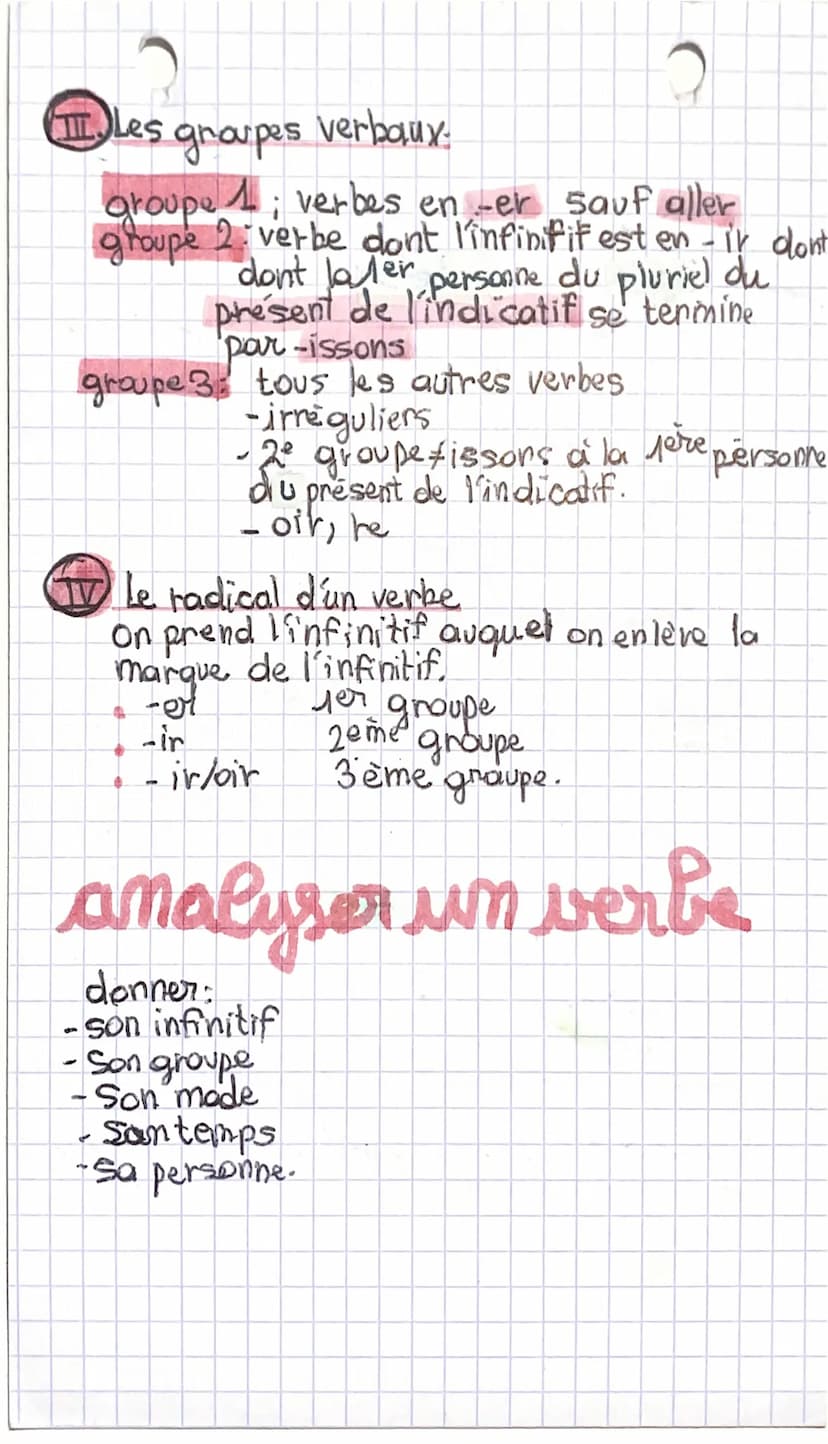 III. Les groupes verbaux.
groupe 1 : verbes en -er sauf aller
groupe 2 : verbe dont l'infinitif est en - ir dont
dont la 1er personne du pluriel du
présent de l'indicatif se termine
par -issons
groupe 3 : tous les autres verbes
-irréguliers
- 2e groupe ≠ issons à la 1ère personne
du présent de l'indicatif.
- oir, re
IV Le radical d'un verbe
on prend l'infinitif auquel on enlève la
marque de l'infinitif.
• -er 1er groupe
• -ir 2eme groupe
• - ir/oir 3ème groupe.
analyser un verbe
donner :
- son infinitif
- Son groupe
- Son mode
- Son temps
- Sa personne.